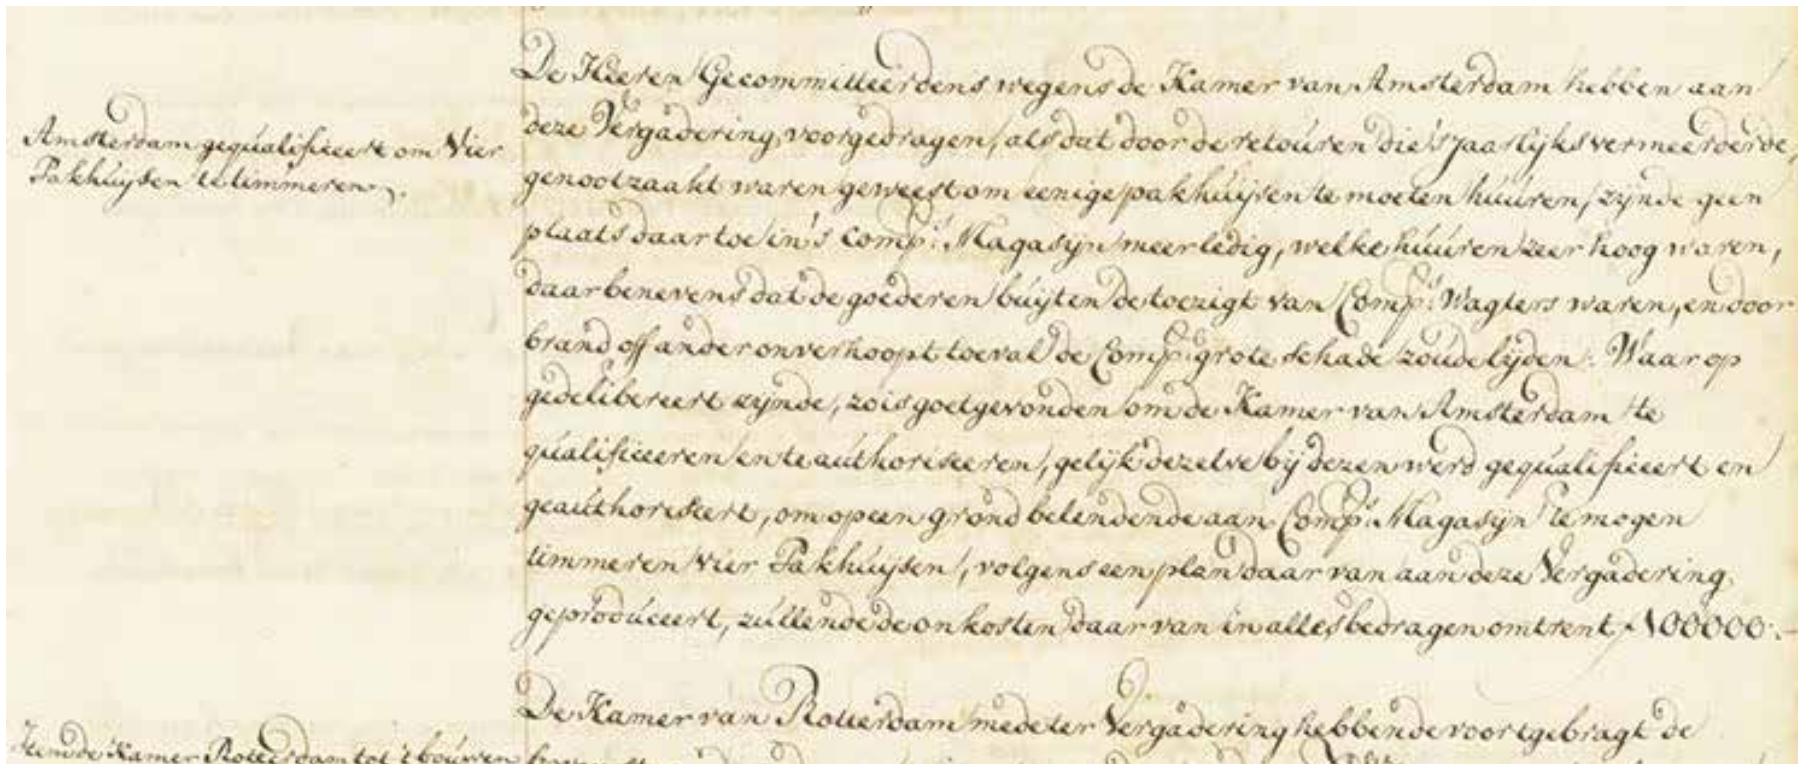 Amsterdam gequalificeert om Vier
Pakhuijsen te timmeren.
De Heeren Gecommitteerdens wegens de Kamer van Amsterdam hebben aan
deze Vergadering voorgedragen, als dat door de retouren die 's jaarlijks vermeerderde,
genootzaakt waren geweest om eenige pakhuijsen te moeten huuren, zijnde geen
plaats daar toe in 's Comp:s Magasijn meer ledig, welke huuren zeer hoog waren,
daar benevens dat de goederen buijten de toezigt van Comp:s Wagters waren, en door
brand off ander onverhoopt toeval de Comp: grote schade zoude lijden. Waar op
gedelibereert zijnde, zo is goetgevonden om de Kamer van Amsterdam te
qualificeeren en te authoriseeren, gelijk dezelve bij dezen werd gequalificeert en
geauthoriseert, om op een grond belendende aan Comp:s Magasijn te mogen
timmeren vier Pakhuijsen, volgens een plan daar van aan deze Vergadering
geproduceert, zullende de onkosten daar van in alles bedragen omtrent ƒ 100000.-
De Kamer van Rotterdam mede ter Vergadering hebbende voortgebragt de
Item de Kamer Rotterdam tot 't bouwen